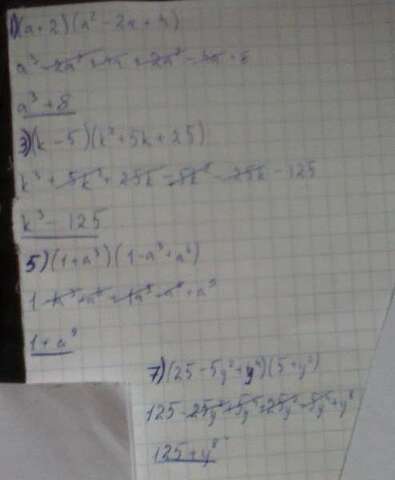 1)(a+2)(a²-2a+4)
a³-2a²+4a+2a²-4a+8
a³+8
3)(k-5)(k²+5k+25)
k³+5k²+25k-5k²-25k-125
k³-125
5)(1+a³)(1-a³+a⁶)
1-a³+a⁶+a³-a⁶+a⁹
1+a⁹
7)(25-5y²+y⁴)(5+y²)
125-25y²+5y⁴+25y²-5y⁴+y⁶
125+y⁶